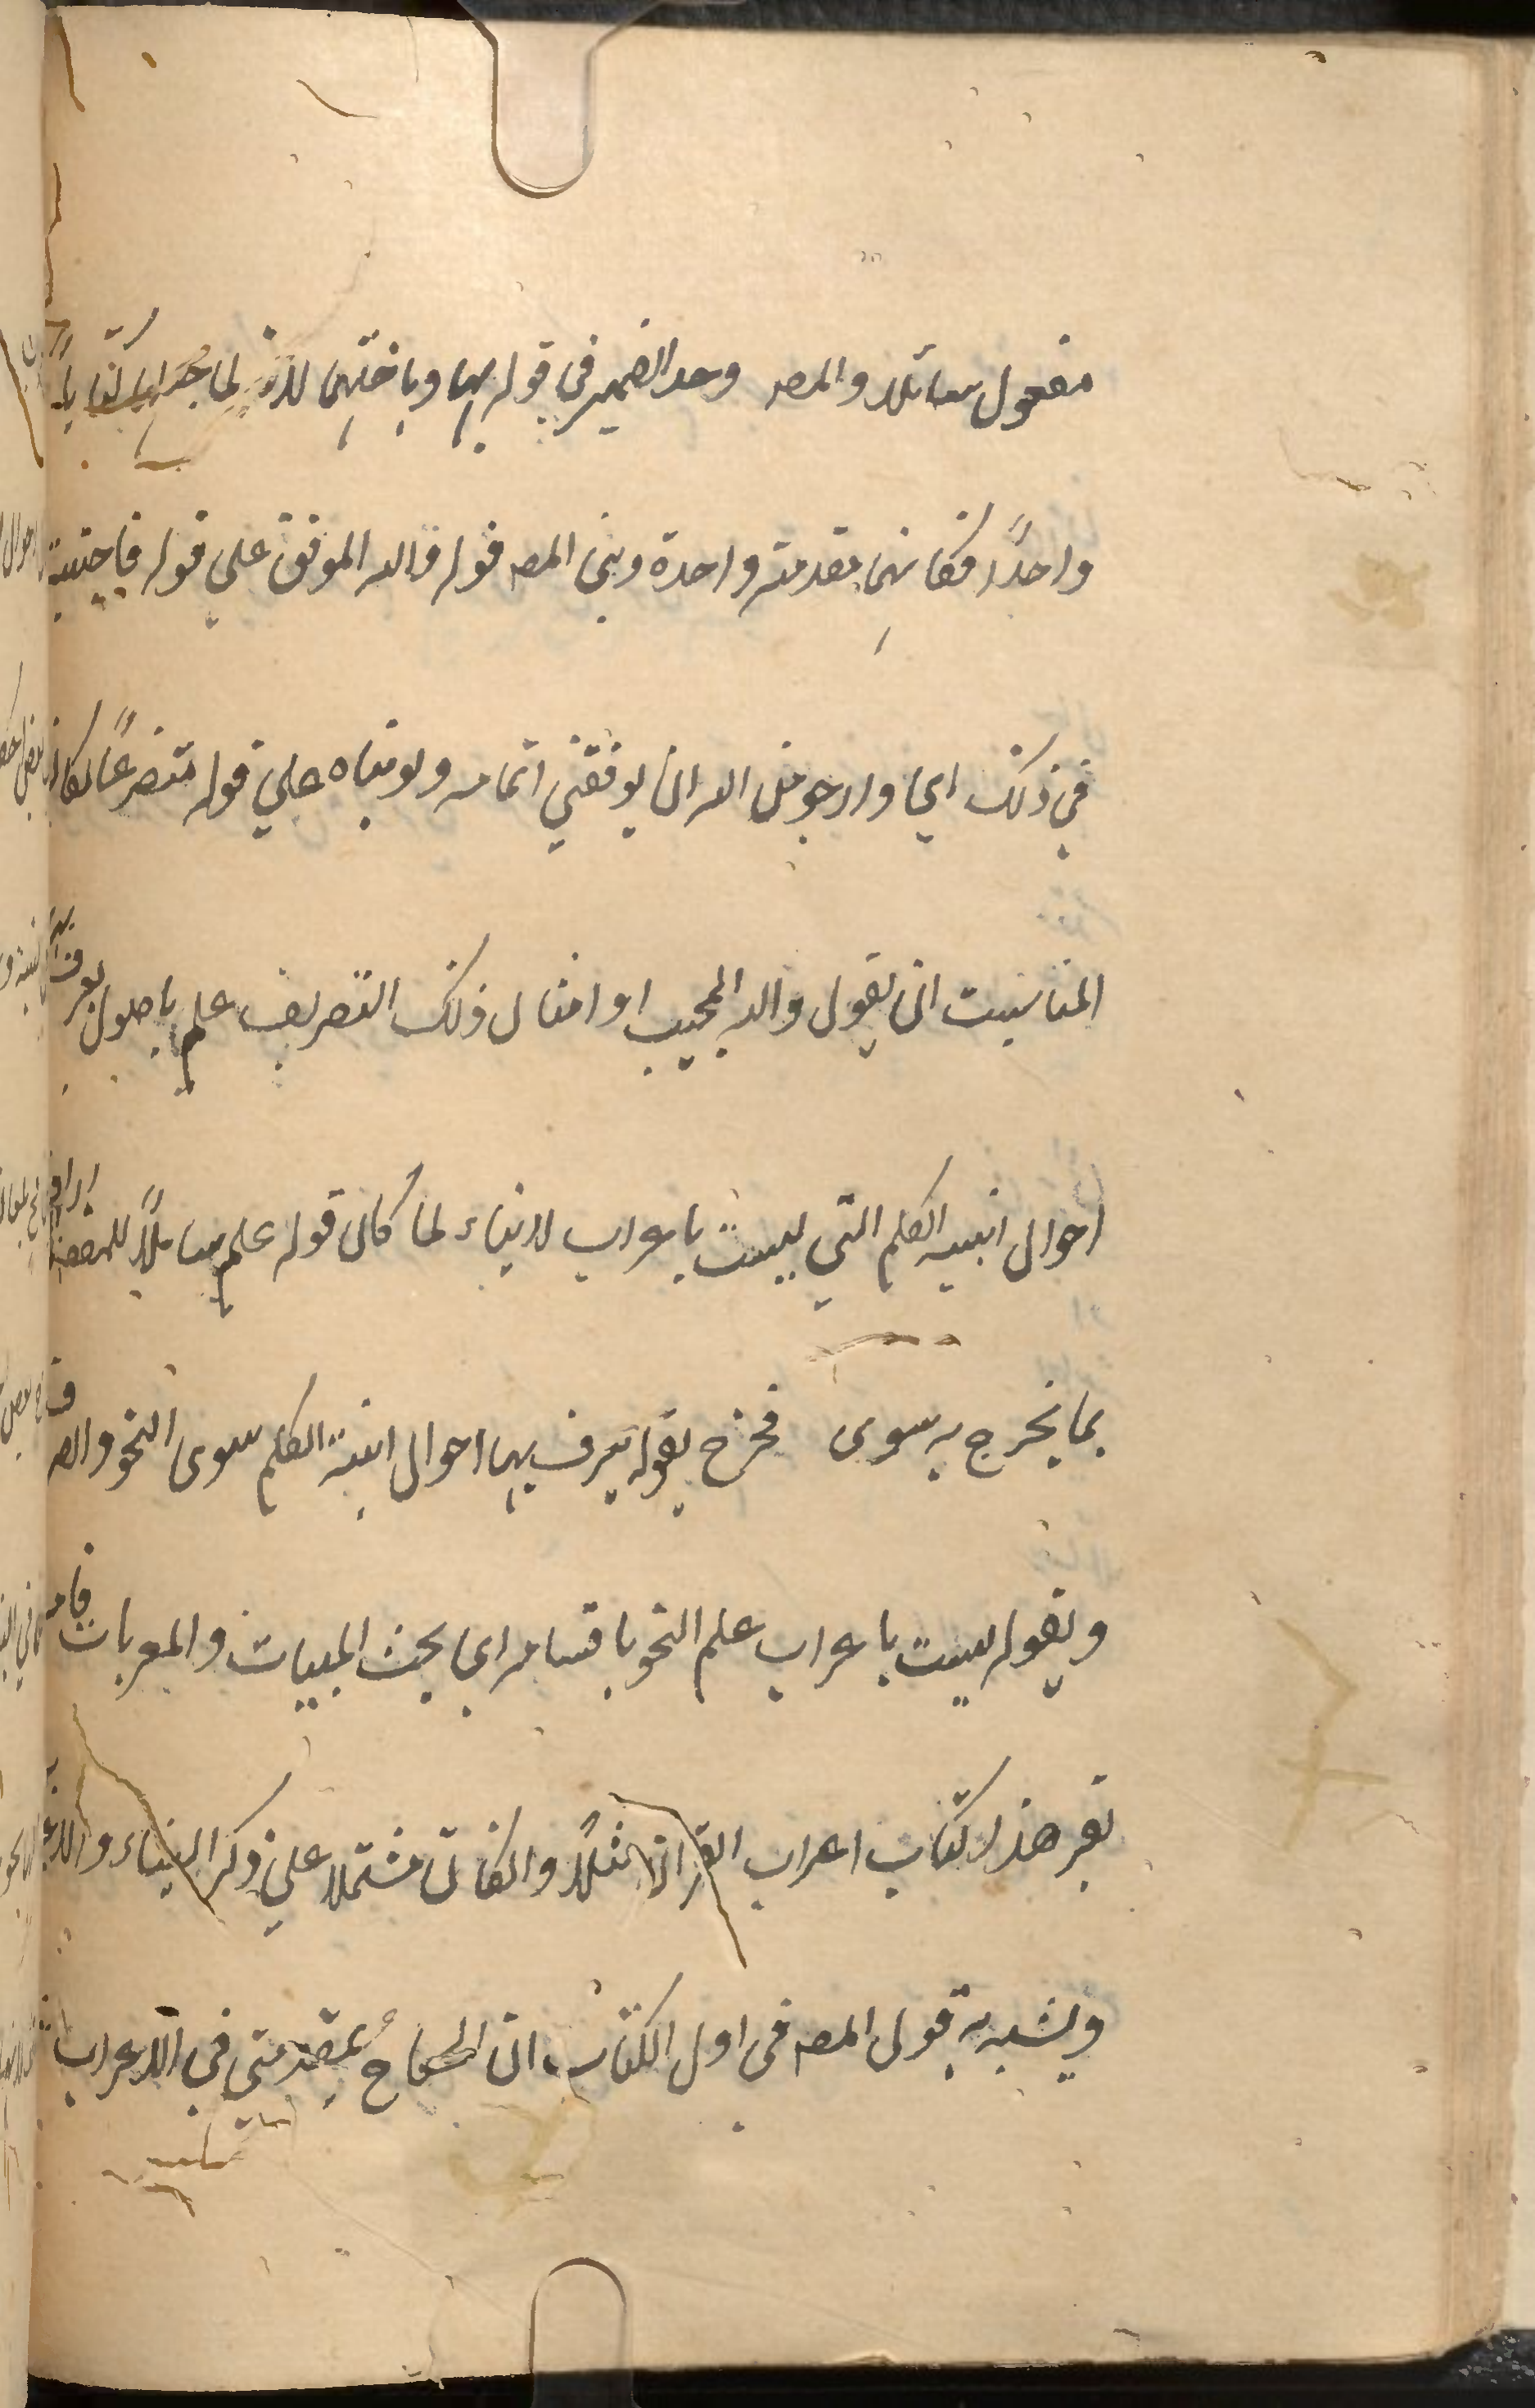 مفعول سائلا والمصـ وحد الضمير في قوله بها وباختها لانه لما جعلهما كتابا
واحدًا فكانهما مقدمة واحدة وبنى المصـ قوله والله الموفق علي قوله فاجبته
في ذلك اي وارجو من الله ان يوفقني اتمامه ولو بناه علي قوله متضرعًا لكان
المناسبت ان يقول والله المجيب او امثال ذلك التصريف علم باصول يعرف بها
احوال ابنيه الكلم التي ليست باعراب لا بناء لما كان قوله علم شاملًا للمقصود
بما يخرج به سوى فخرج بقوله يعرف بها احوال ابنية الكلم سوى النحو والصرف
وبقوله ليست باعراب علم النحو باقسامه اي بحث المبنيات والمعربات
بقي هذا كتاب اعراب القران مثلًا والكتاب مشتملا علي ذكر البناء والاعراب
ويشبه به قول المصـ في اول الكتاب ان الحق بمقدمتي في الاعراب